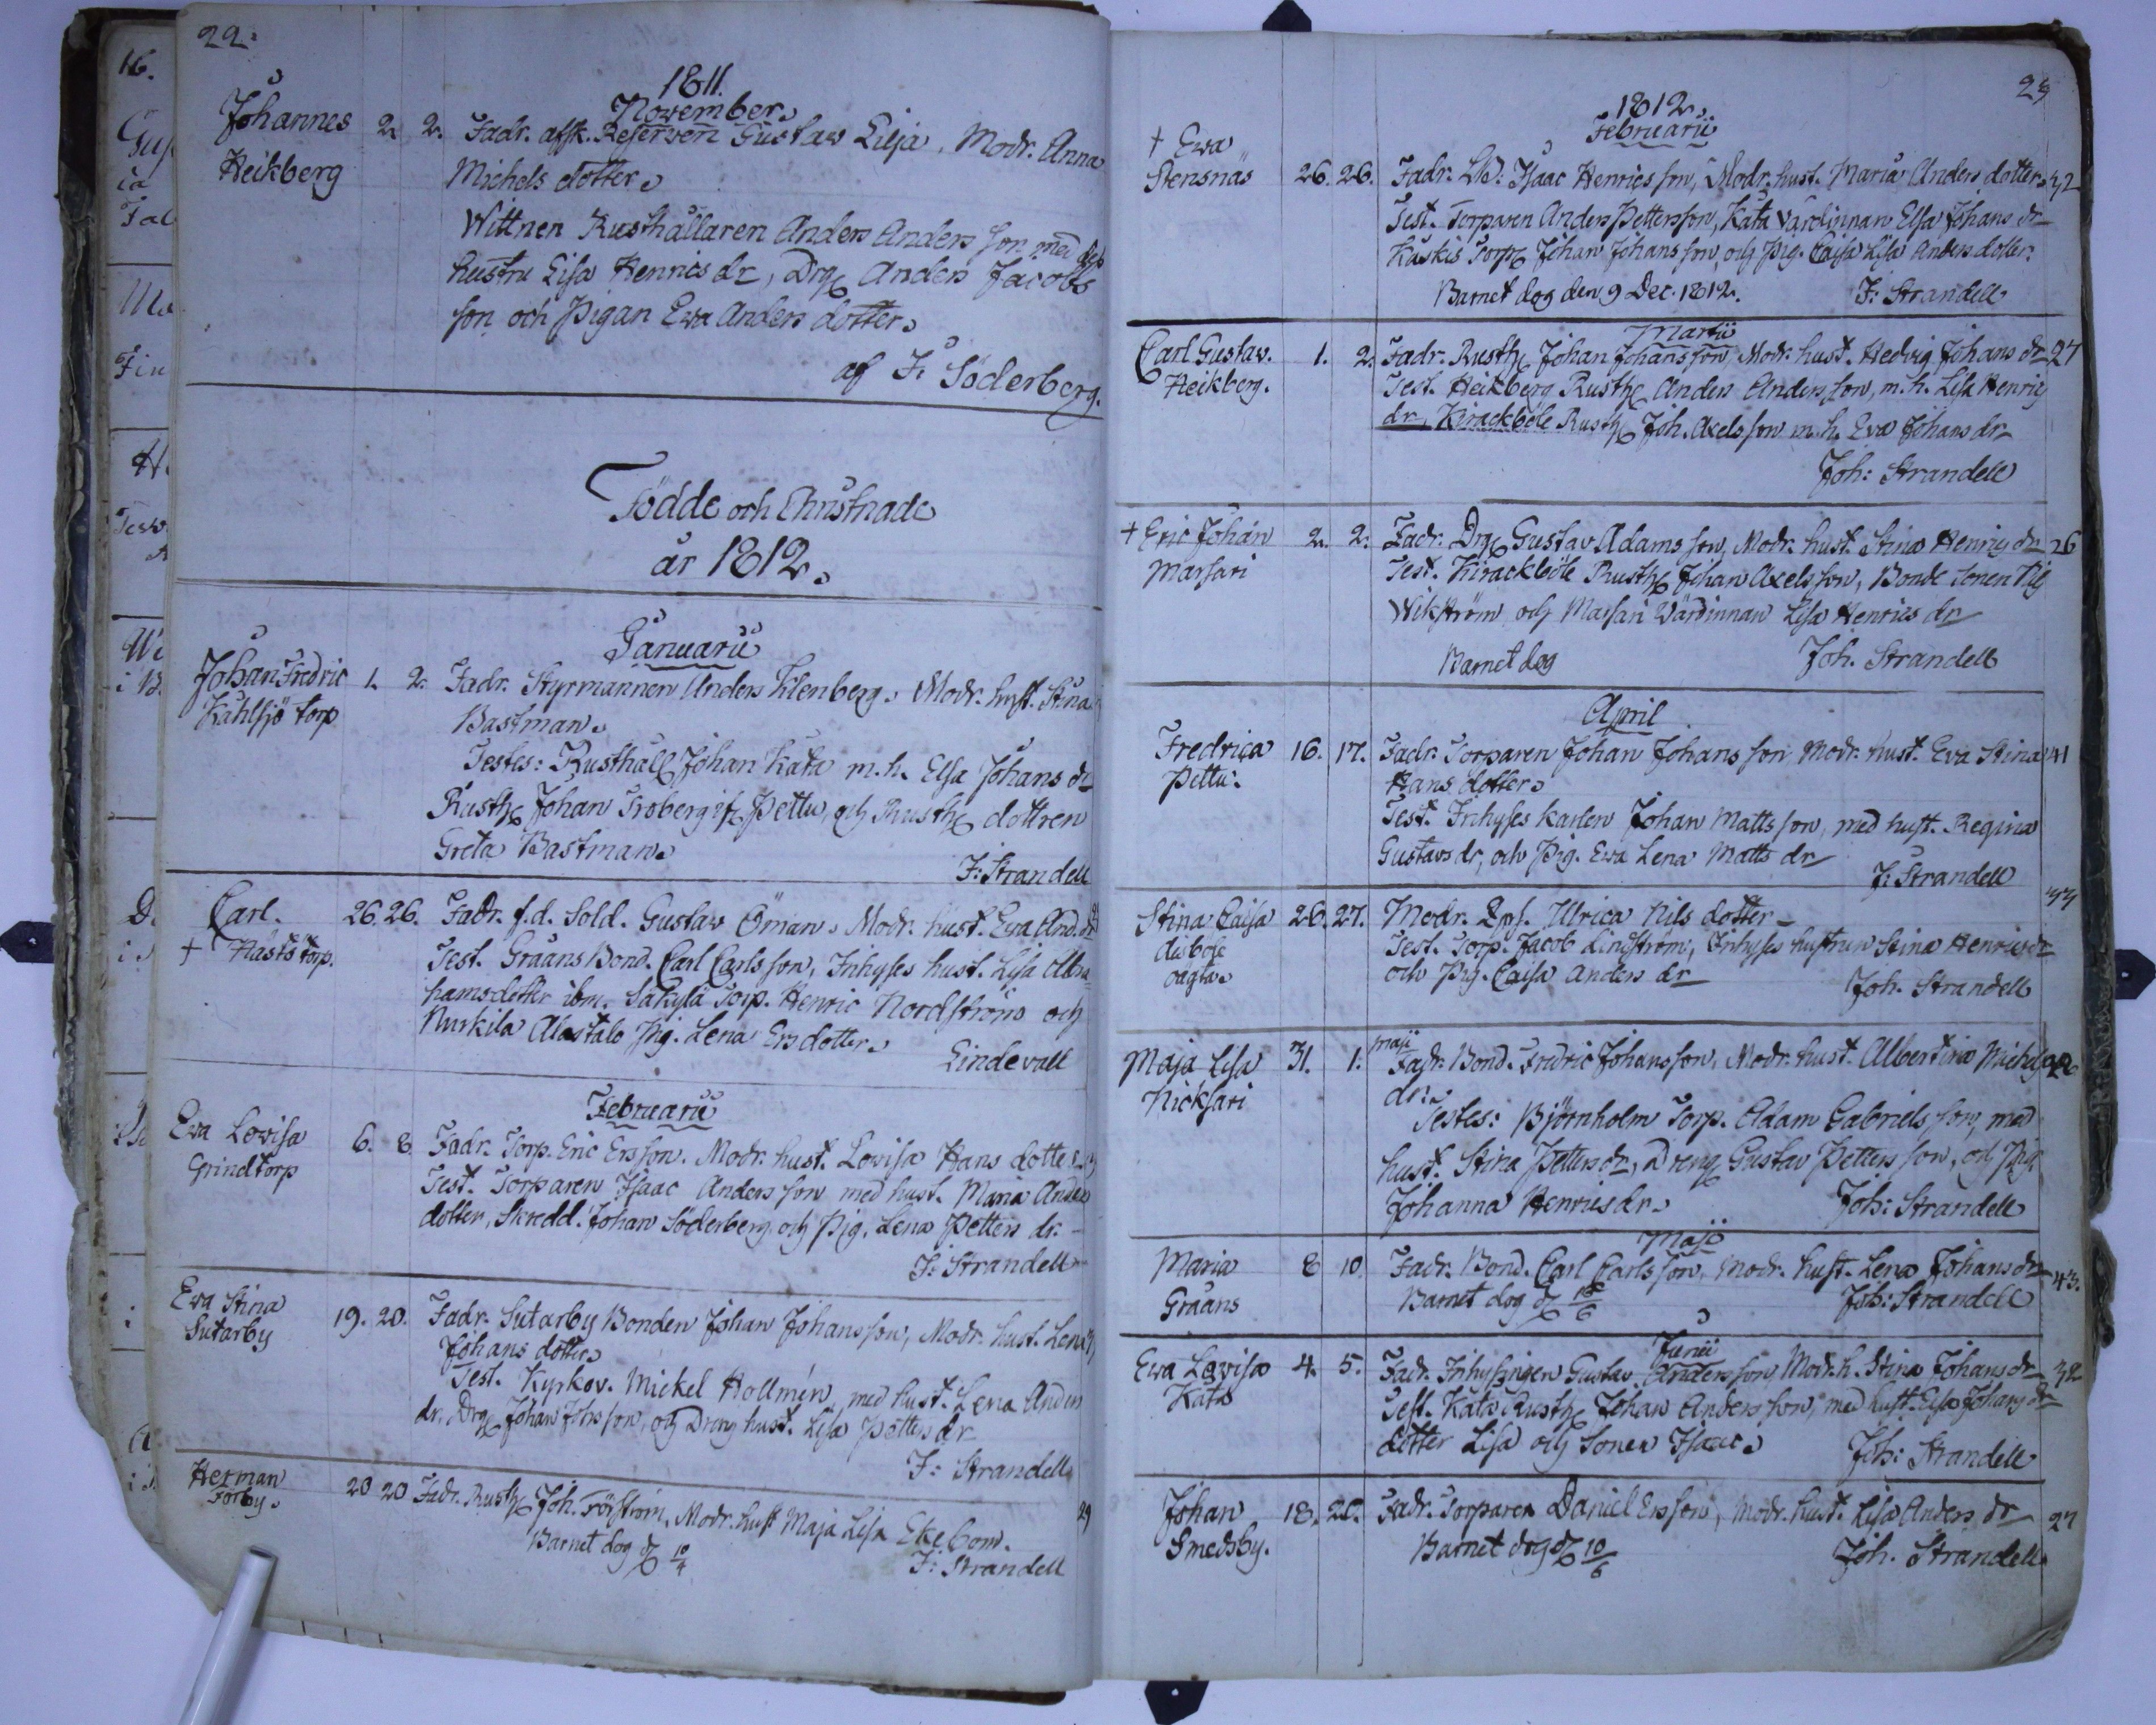 22.
1811.
November.
Johannes 2. 2. Fadr. afsk. Reserven Gustaw Lilja, Modr. Anna
Heikberg Michels dotter.
Wittnen Rusthållaren Anders Anders son med dess
hustru Lisa Henrics dr, Drg Anders Jacobs
son och Pigan Ewa Anders dotter.
af J. Söderberg.
Födde och Christnade
år 1812.
Januarii
Johan Fredric 1. 2. Fadr. Styrmannen Anders Hlenberg. Modr. hust. Stina
Kåhlsjö torp Bastman.
Testes: Rusthåll Johan Kata m.h. Elsa Johans dr
Rusth Johan Froberg if Pettu, och Rusth dottren
Greta Bastman.
J: Strandell
Carl. 26. 26. Fadr. f.d. Sold. Gustaw Öman. Modr. hust. Eva And. dr
+ Hästö torp. Test. Gråäns Bond. Carl Carlsson, Inhyses hust. Lisa Abra
hamsdotter ibm. Sakyla Torp. Henric Nordström och
Nurkila Alastalo Pig. Lena Ersdotter.
Lindevall
Februarii
Ewa Lovisa 6. 8. Fadr. Torp. Eric Ersson. Modr. hust. Lovisa Hans dotter
Grindtorp Test. Torparen Isaac Anders son med hust. Maria Anders
dotter, Skredd. Johan Söderberg, och Pig. Lena Petters dr.
J: Strandell
Ewa Stina 19. 20. Fadr. Sutarby Bonden Johan Johansson, Modr. hust. Lena
Sutarby Johans dotter.
Test. Kyrkov. Mickel Hollmén, med hust. Lena Anders
dr. Drg Johan Johsson, och Dreng hust. Lisa Petters dr
J: Strandell
Herman 20 20 Fadr. Rusth Joh. Forström, Modr. hust Maja Lisa Ekebom. 29
Förby. Barnet dog d 10/4
J: Strandell
23
1812.
Februarii
+ Ewa
Stensnäs 26. 26. Fadr. Isaac Henrics son, Modr. hust. Maria Anders dotter 32
Test. Torparen Anders Pettersson, Kata Värdinnan Elsa Johans dr
Kuskis Torp Johan Johansson, och Pig. Caisa Lisa Anders dotter.
Barnet dog den 9 Dec. 1812. J: Strandell
Martii
Carl Gustav. 1. 2. Fadr. Rusth Johan Johansson, Modr. hust. Hedvig Johans dr 27
Heikberg. Test. Heikberg Rusth Anders Andersson, m.h. Lisa Henrics
dr, Kirackböle Rusth Joh. Axelsson m.h. Eva Johans dr
Joh: Strandell
+ Eric Johan 2. 2. Fadr. Drg Gustav Adams son, Modr. hust. Stina Henrics dr 26
Massari Test. Kirackböle Rusth Johan Axelsson, Bonde sonen Nils
Wikström och Massari Värdinnan Lisa Henrics dr
Barnet dog Joh. Strandell
April
Fredrica 16. 17. Fadr. Torparen Johan Johans son Modr. hust. Eva Stina 41
Pettu: Hans dotter.
Test. Inhyses karlen Johan Mattsson, med hust. Regina
Gustavs dr, och Pig. Ewa Lena Matts dr
J: Strandell
Stina Caisa 26. 27. Modr. Qps. Ulrica Nils dotter
Test. Torp. Jacob Lindström, Inhyses hustrun Stina Henrics dr
och Pig. Caisa Anders dr
Joh. Strandell
Maji
Maja Lisa 31. 1. Fadr. Bond. Fredric Johansson, Modr. hust. Albertina Michels
Kicksari dr.
Testes: Björnholm Torp. Adam Gabriels son, med
hust. Stina Petters dr, Dreng Gustav Petters son, och Pig
Johanna Henrics dr. Joh: Strandell
Majo
Maria 8 10 Fadr. Bond. Carl Carlsson, Modr. hust. Lena Johans dr 43.
Gråäns Barnet dog d Joh: Strandell
Junii
Ewa Lovisa 4. 5. Fadr. Inhysingen Gustav Andersson Modr. h. Stina Johans dr 32
Kata Test. Kata Rusth Johan Andersson, med hust. Elsa Johans dr
dotter Lisa och Sonen Isaac. Joh: Strandell
Johan 18. 20. Fadr. Torparen Daniel Ersson, Modr. hust. Lisa Anders dr 27
Smedsby. Barnet dog d 10/6 Joh. Strandell.